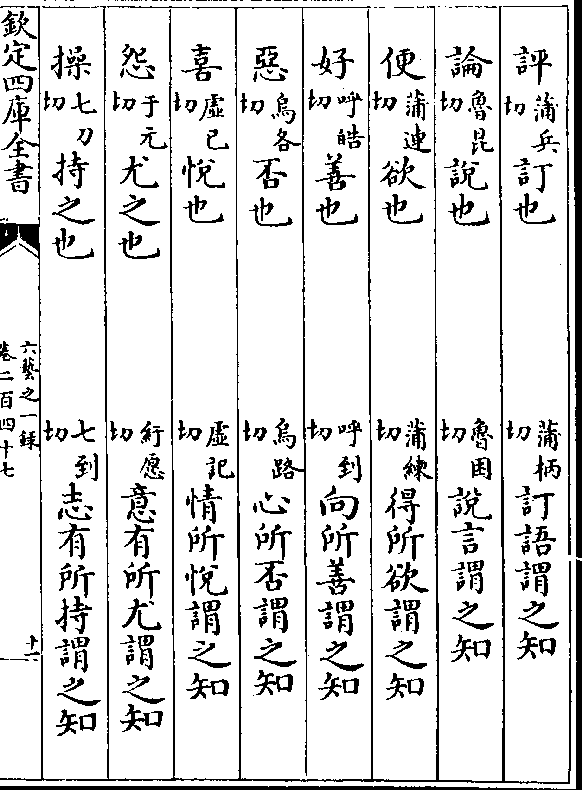 評蒲兵切訂也 蒲柄切訂語謂之知
論魯昆切說也 魯困切說言謂之知
便蒲連切欲也 蒲練切得所欲謂之知
好呼皓切善也 呼到切向所善謂之知
惡烏各切否也 烏路切心所否謂之知
喜虛已切悅也 虛記切情所悅謂之知
怨于元切尤之也 紆愿切意有所尤謂之知
操七刀切持之也 七到切志有所持謂之知
欽定四庫全書 六藝之一錄 卷二百四十七